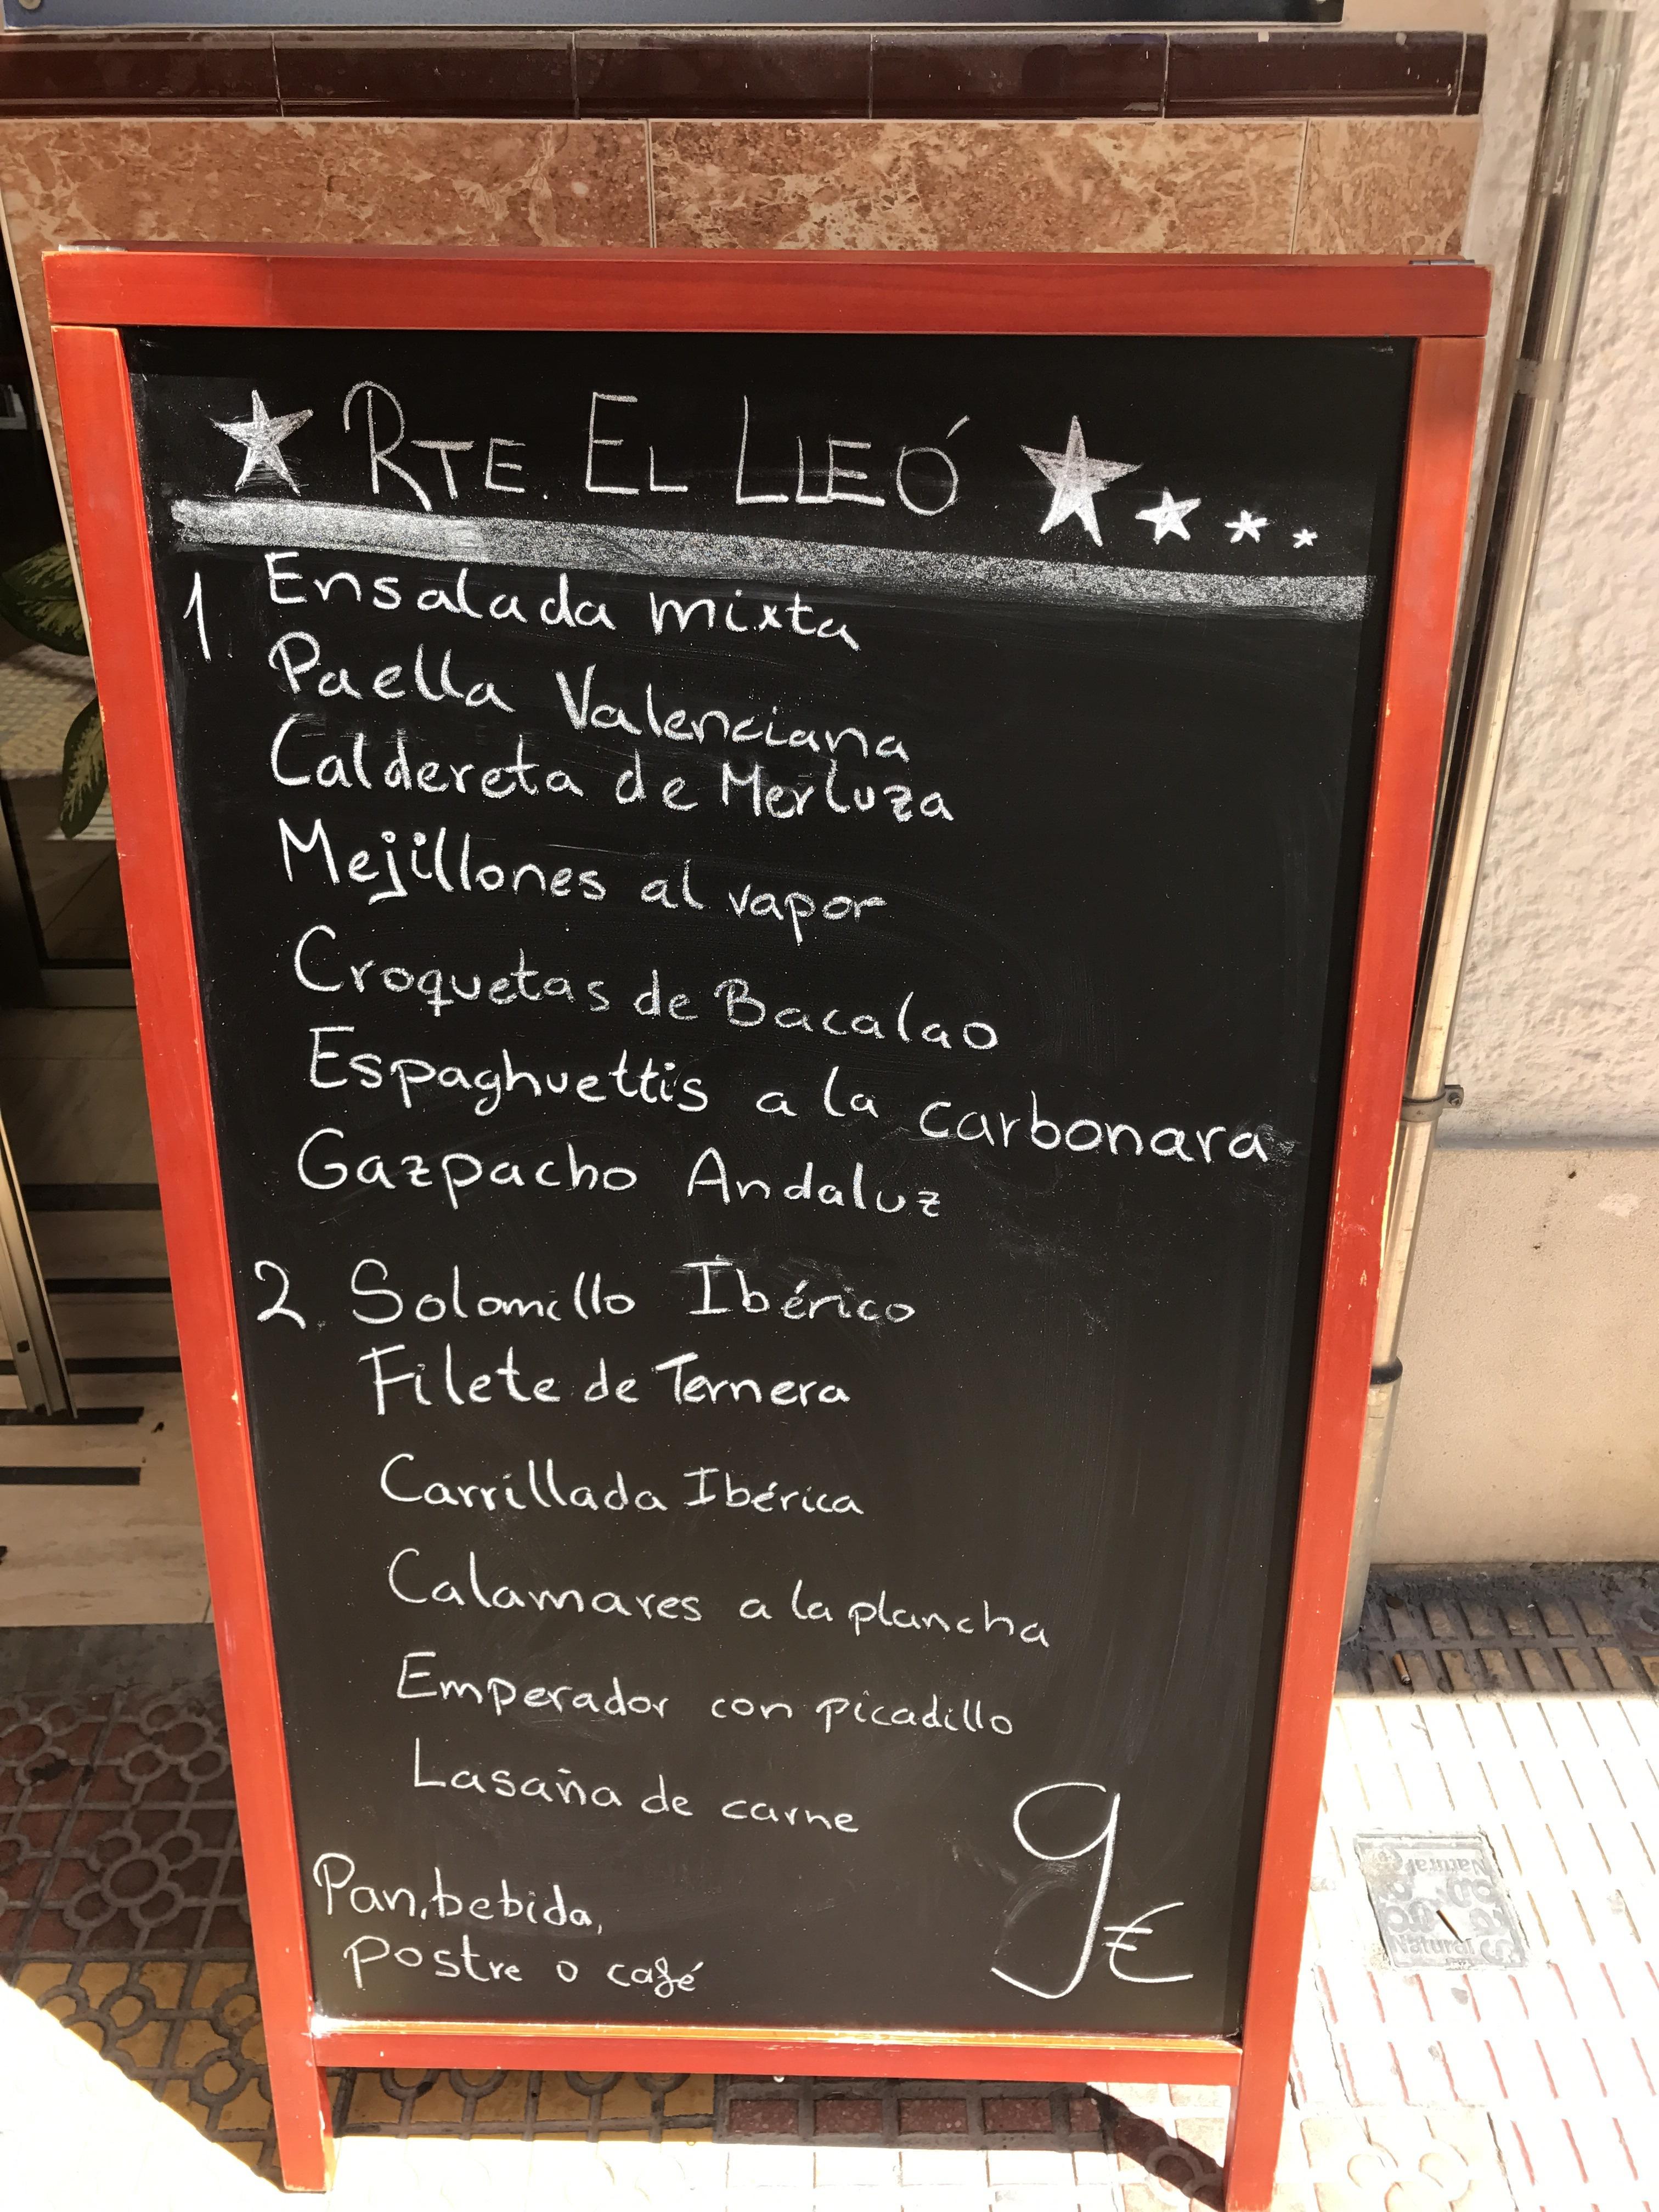 RTE. EL LLEÓ
1 Ensalada mixta
Paella Valenciana
Caldereta de Merluza
Mejillones al vapor
Croquetas de Bacalao
Espaghuettis a la carbonara
Gazpacho Andaluz
2. Solomillo Ibérico
Filete de Ternera
Carrillada Ibérica
Calamares a la plancha
Emperador con picadillo
Lasaña de carne
Pan, bebida,
postre o café
9€
Natural
Natural